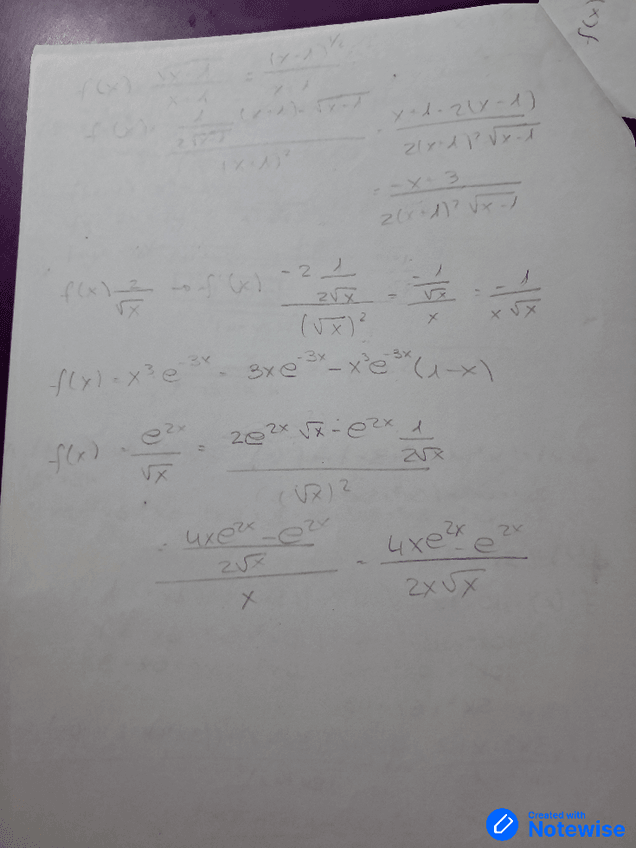 f(x) √x-1 / x+1 = (x-1)^1/2 / x+1
f'(x) = 1/2√x-1 (x+1) - √x-1 / (x+1)² = x+1-2(x-1) / 2(x+1)²√x-1
= -x-3 / 2(x+1)²√x-1
f(x) 2/√x → f'(x) -2 1/2√x / (√x)² = -1/√x / x = -1 / x√x
f(x) = x³e^-3x = 3xe^-3x - x³e^-3x (1-x)
f(x) = e^2x / √x = 2e^2x √x - e^2x 1/2√x / (√x)²
= 4xe^2x - e^2x / 2√x / x = 4xe^2x - e^2x / 2x√x
f(x)
Created with
Notewise